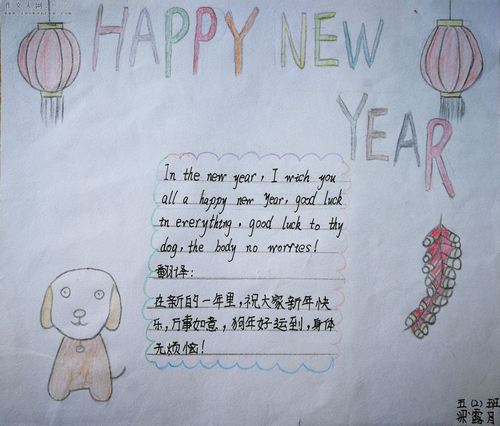 HAPPY NEW
YEAR
In the new year, I wich you
all a happy new Year, good luck
in everything, good luck to thy
dog, the body no worries!
翻译:
在新的一年里,祝大家新年快
乐,万事如意,狗年好运到,身体
无烦恼!
五(2)班
梁露月